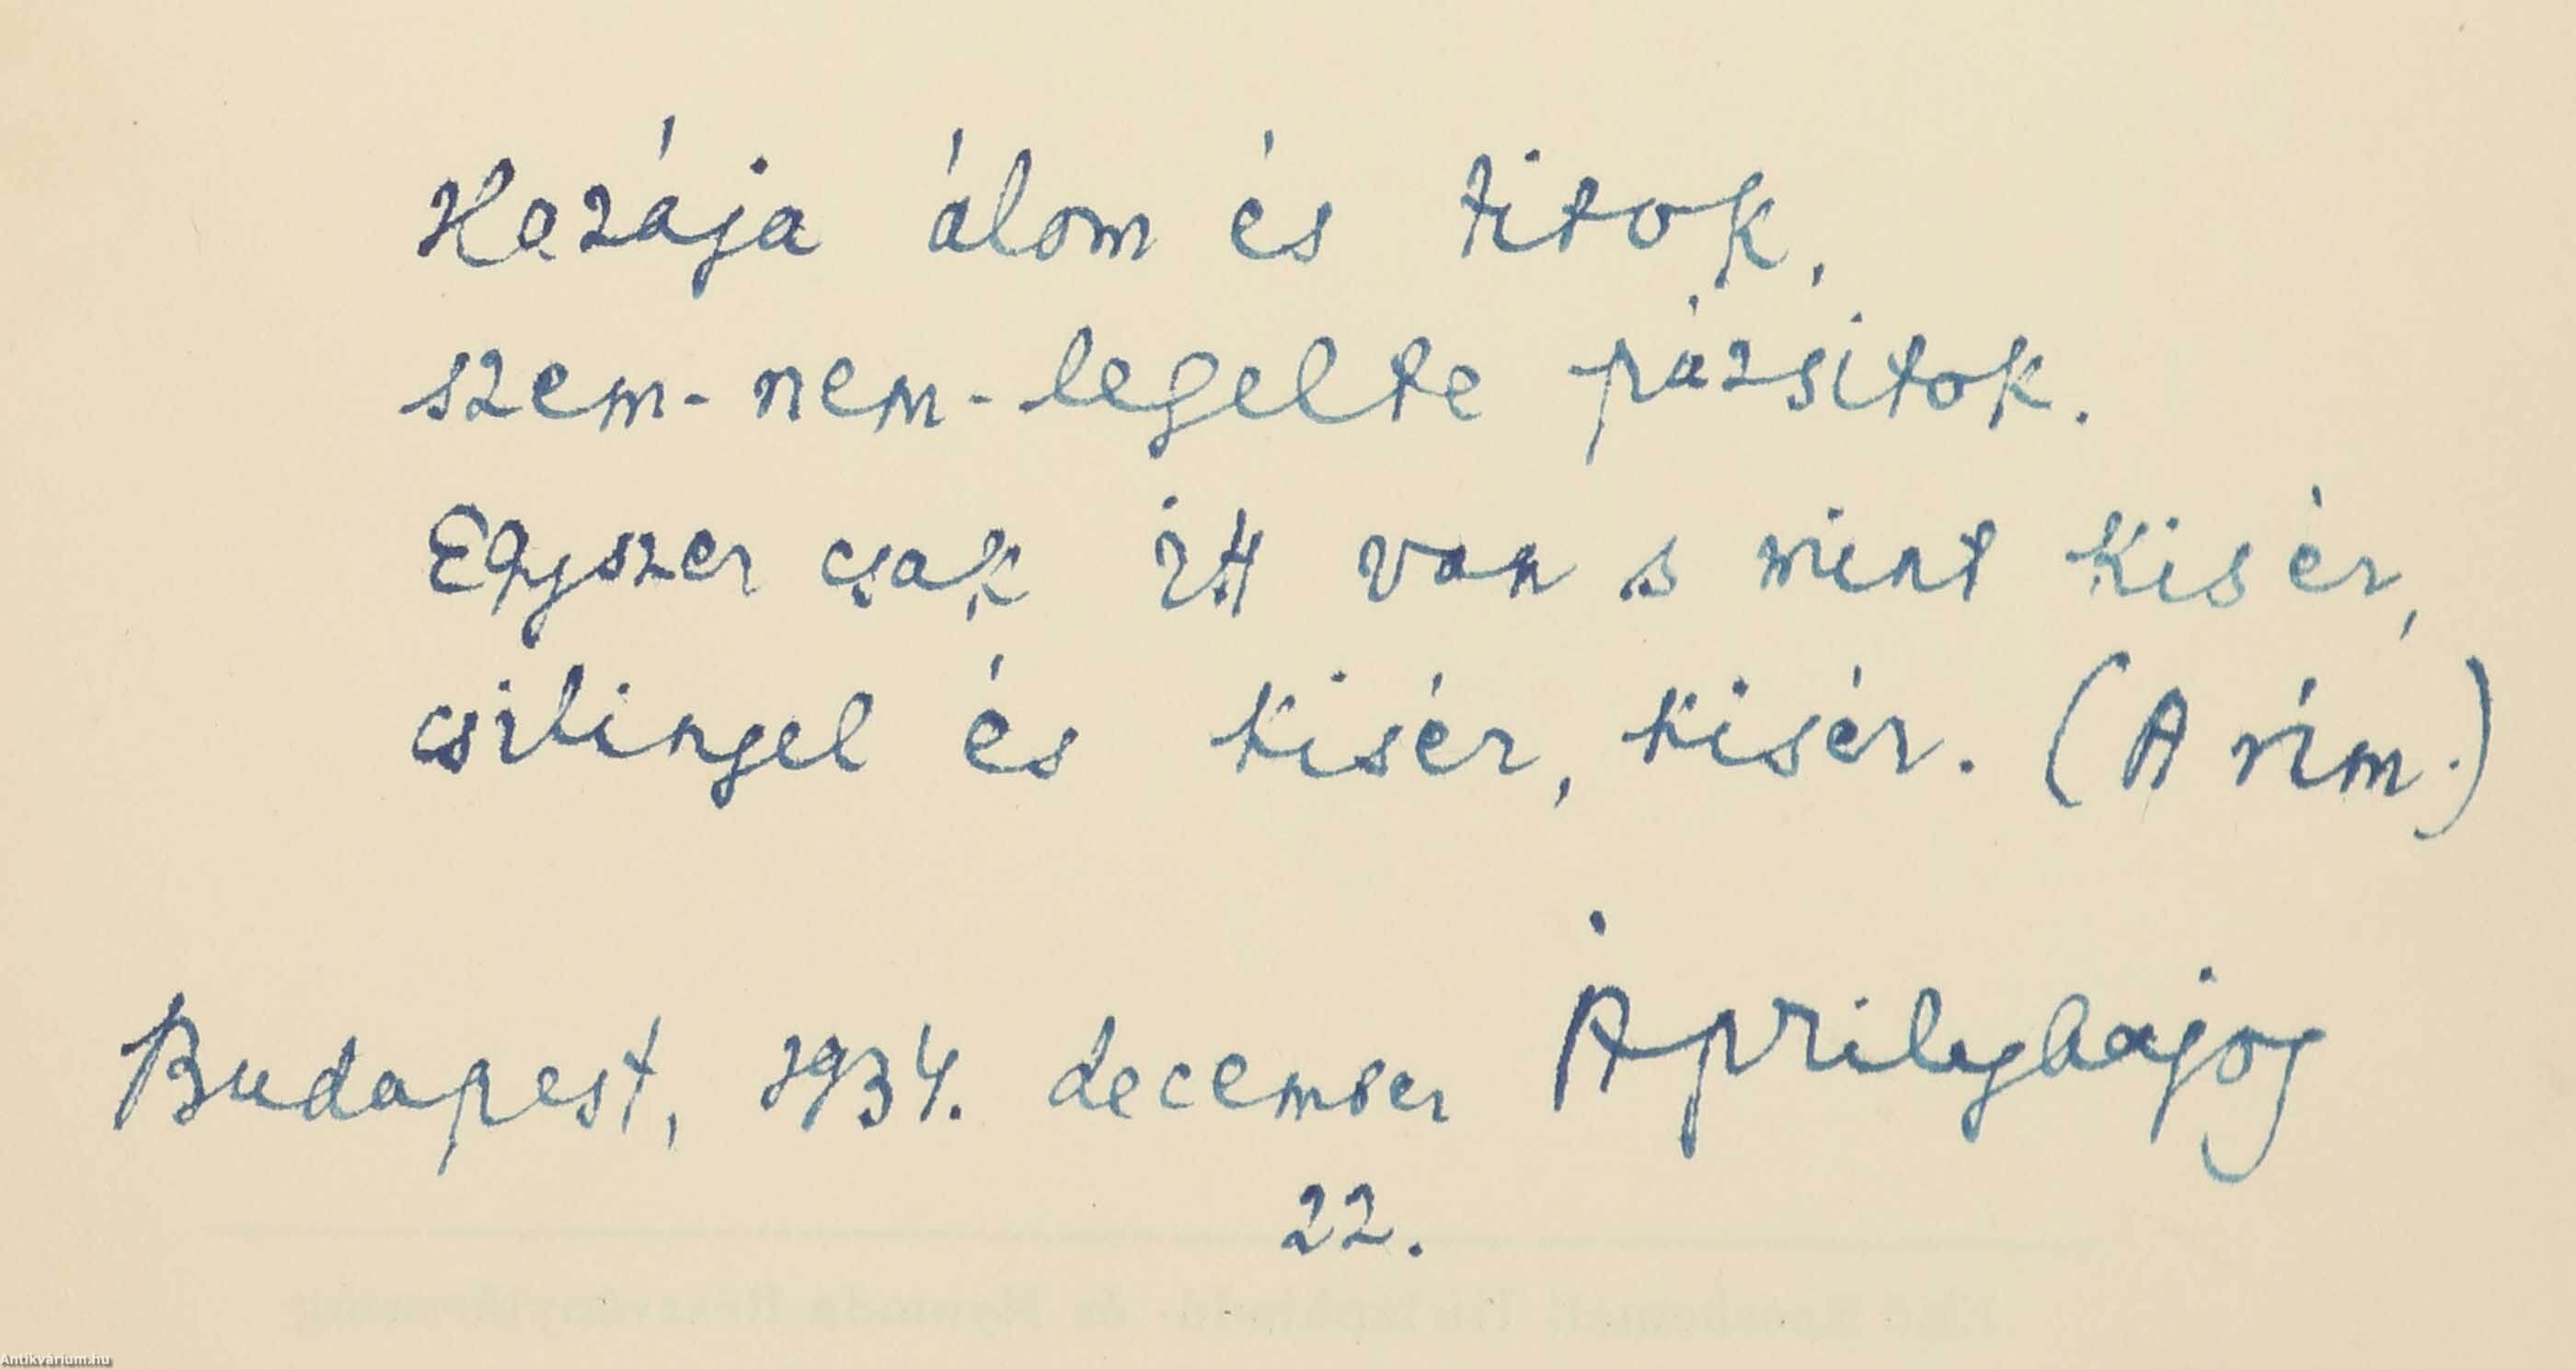 Hazája álom és titok,
szem-nem-legelte pázsitok.
Egyszer csak itt van s mint kisér,
csilingel és kisér, kisér. (A rím.)
Áprily Lajos
Budapest, 1934. december
22.
Antikvárium.hu